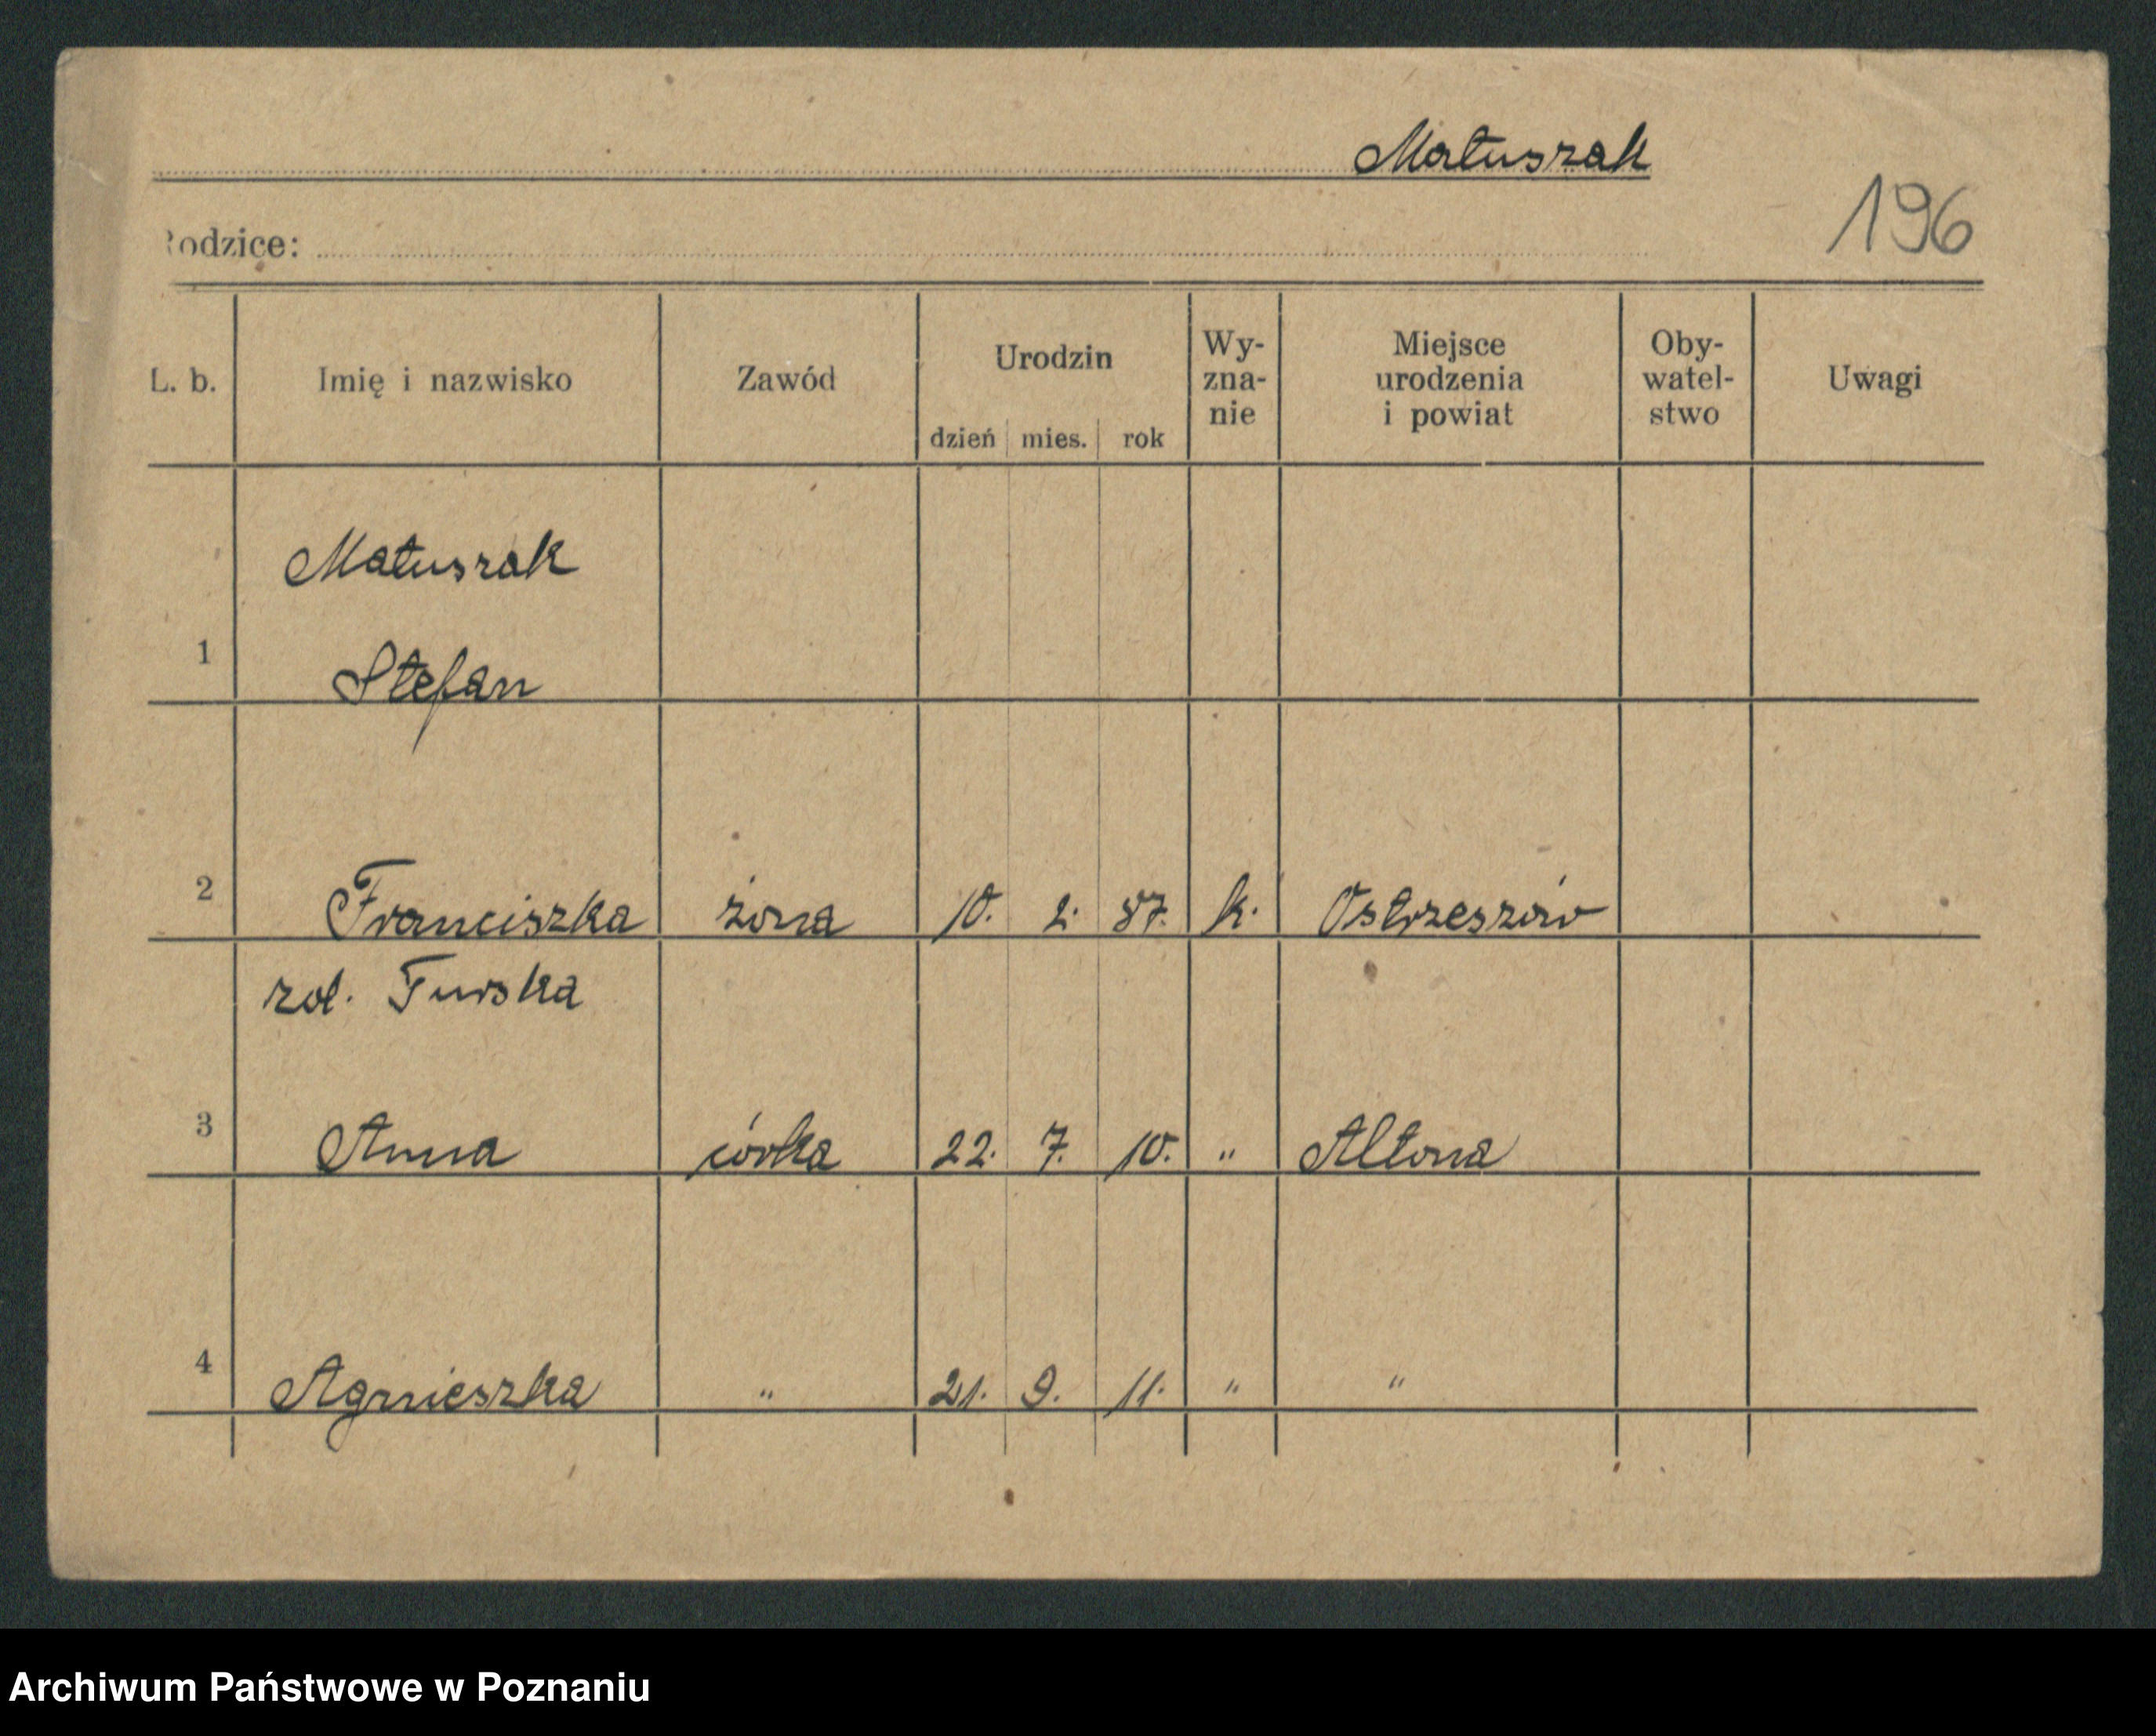 Matuszak
196
Rodzice:
L. b. Imię i nazwisko Zawód Urodzin dzień mies. rok Wy-zna-nie Miejsce urodzenia i powiat Oby-watel-stwo Uwagi
Matuszak
1 Stefan
2 Franciszka żona 10. 2. 87. k. Ostrzeszów
zd. Turska
3 Anna córka 22. 7. 10. " Altona
4 Agnieszka " 21. 9. 11. " "
Archiwum Państwowe w Poznaniu